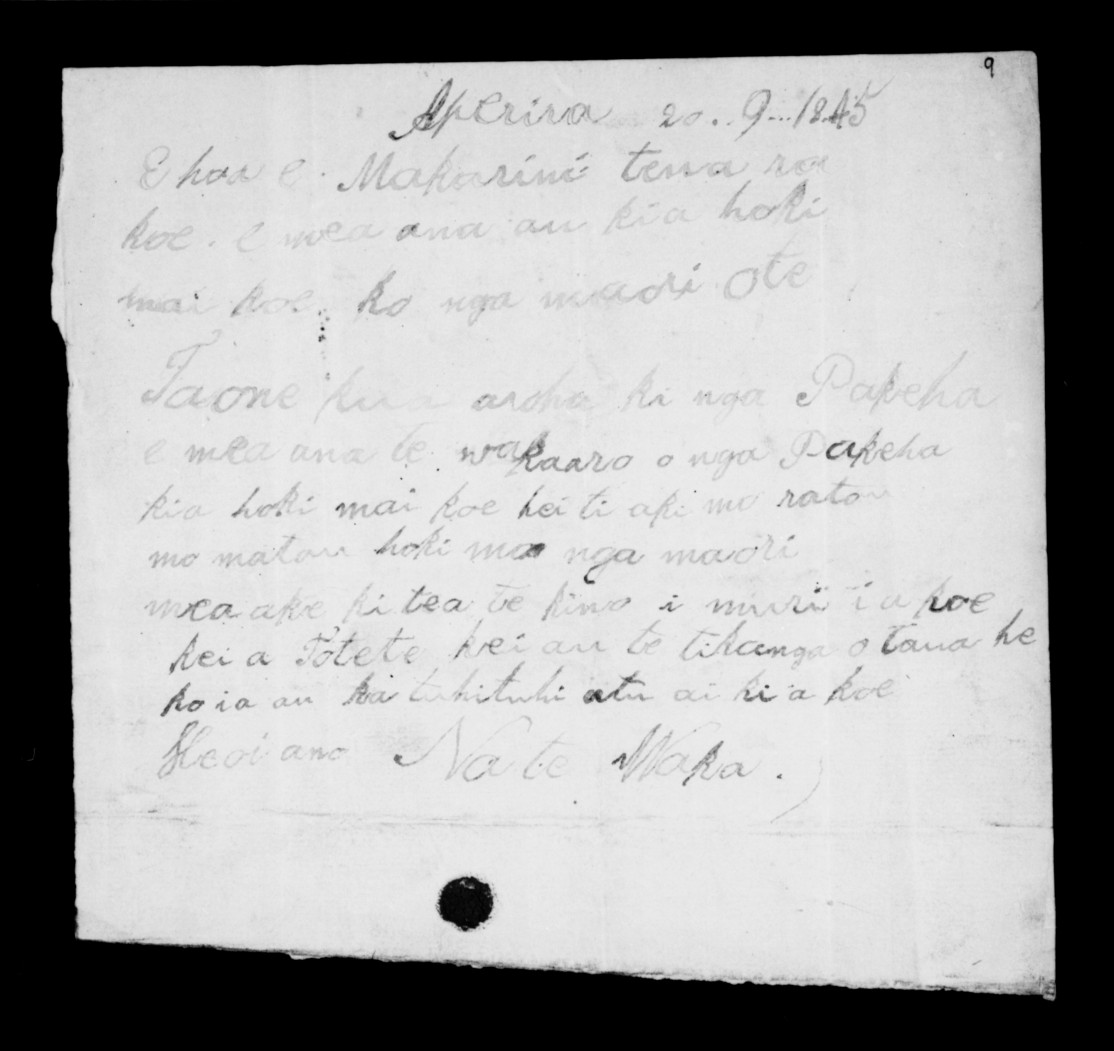 9
Aperira 20..9...1845
E hoa e. Makarini tena ra
koe. e mea ana au kia hoki
mai koe. ko nga maori Ote
Taone kua aroha ki nga Pakeha
e mea ana te wakaaro o nga Pakeha
kia hoki mai koe hei ti aki mo ratou
mo matou hoki mo nga maori
mea ake ki tea te kino i muri i a koe
kei a Totete kei au te tikanga o taua he
ko ia au ka tuhituhi atu ai ki a koe
Heoi ano Na te Waka.